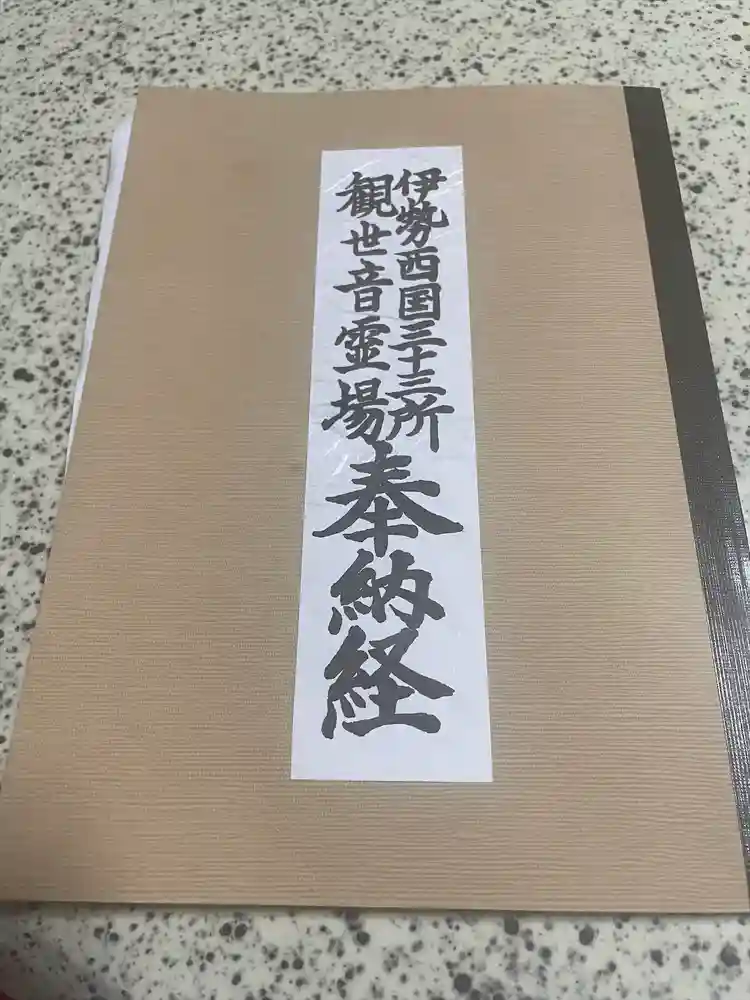 伊勢西国三十三所
観世音霊場
奉納経